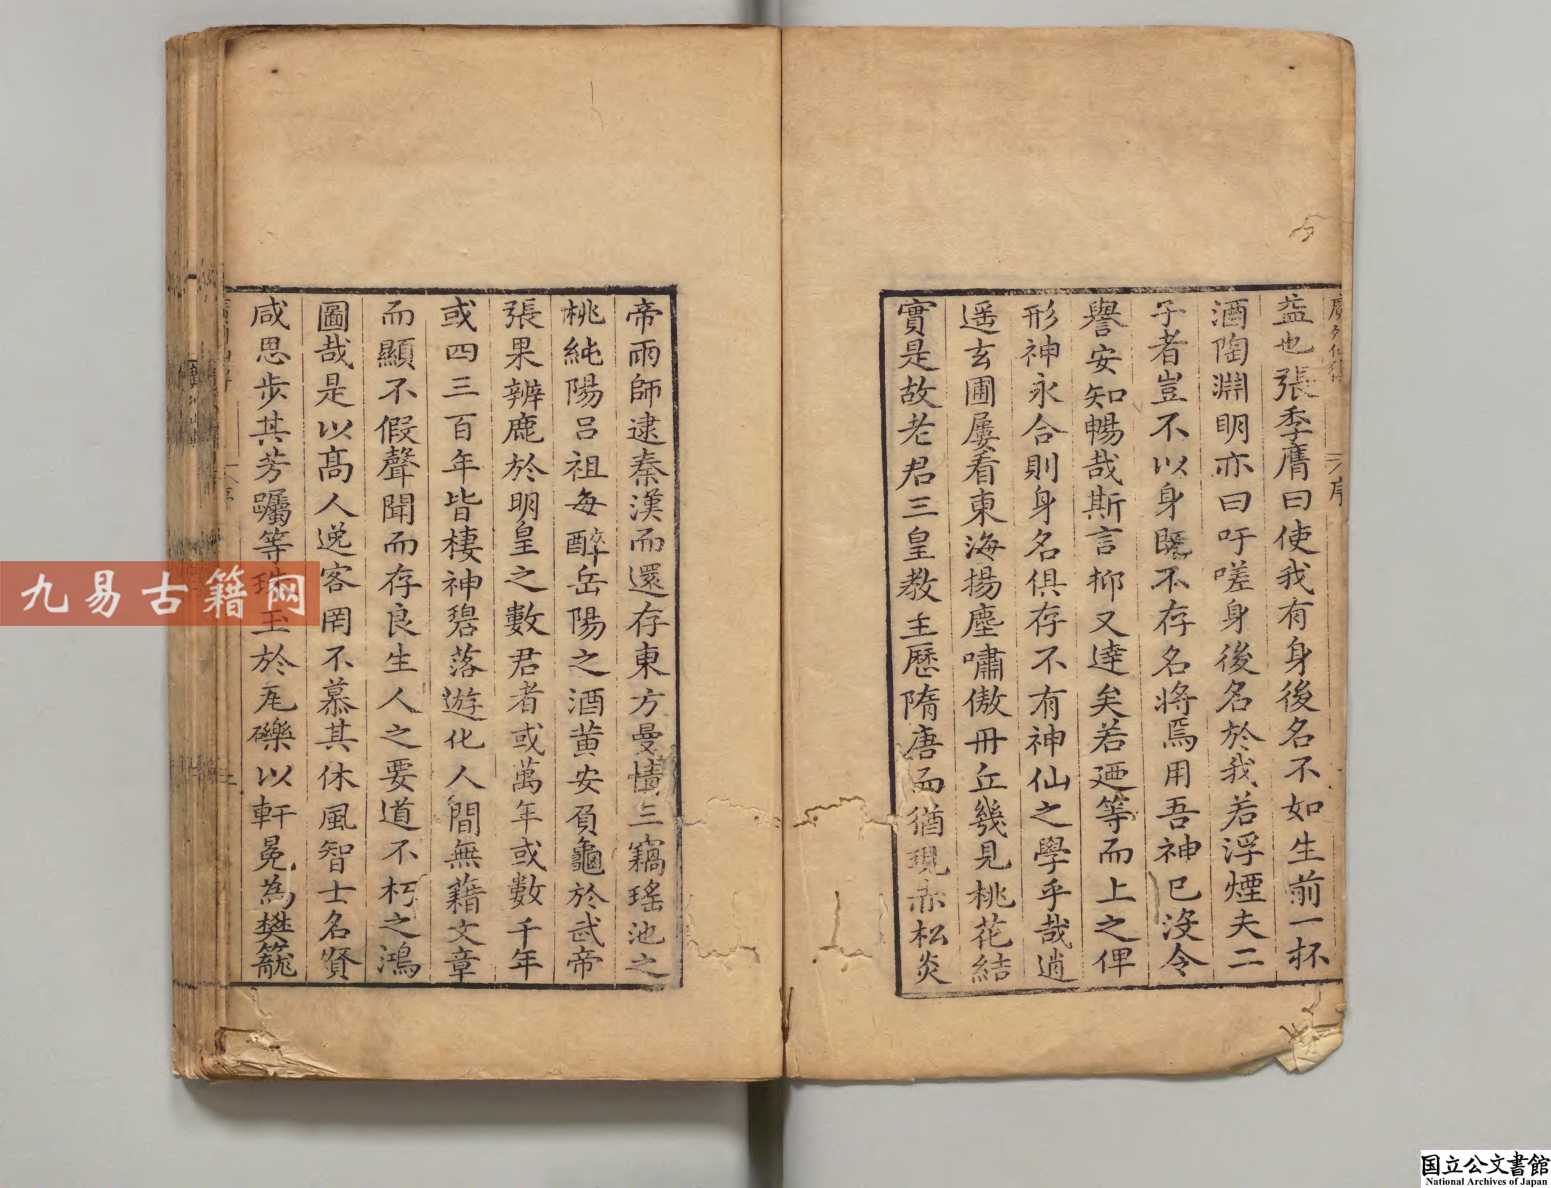 益也張季鷹曰使我有身後名不如生前一杯
酒陶淵明亦曰吁嗟身後名於我若浮煙夫二
子者豈不以身既不存名將焉用吾神已沒令
譽安知暢哉斯言抑又達矣若廼等而上之俾
形神永合則身名俱存不有神仙之學乎哉逍
遥玄圃屢看東海揚塵嘯傲丹丘幾見桃花結
實是故老君三皇教主歷隋唐而猶現赤松炎
帝雨師逮秦漢而還存東方曼倩三竊瑤池之
桃純陽吕祖每醉岳陽之酒黄安負龜於武帝
張果辨鹿於明皇之數君者或萬年或數千年
或四三百年皆棲神碧落遊化人間無藉文章
而顯不假聲聞而存良生人之要道不朽之鴻
圖哉是以高人逸客罔不慕其休風智士名賢
咸思步其芳躅等珠玉於瓦礫以軒冕為樊籠
九易古籍网
国立公文書館
National Archives of Japan